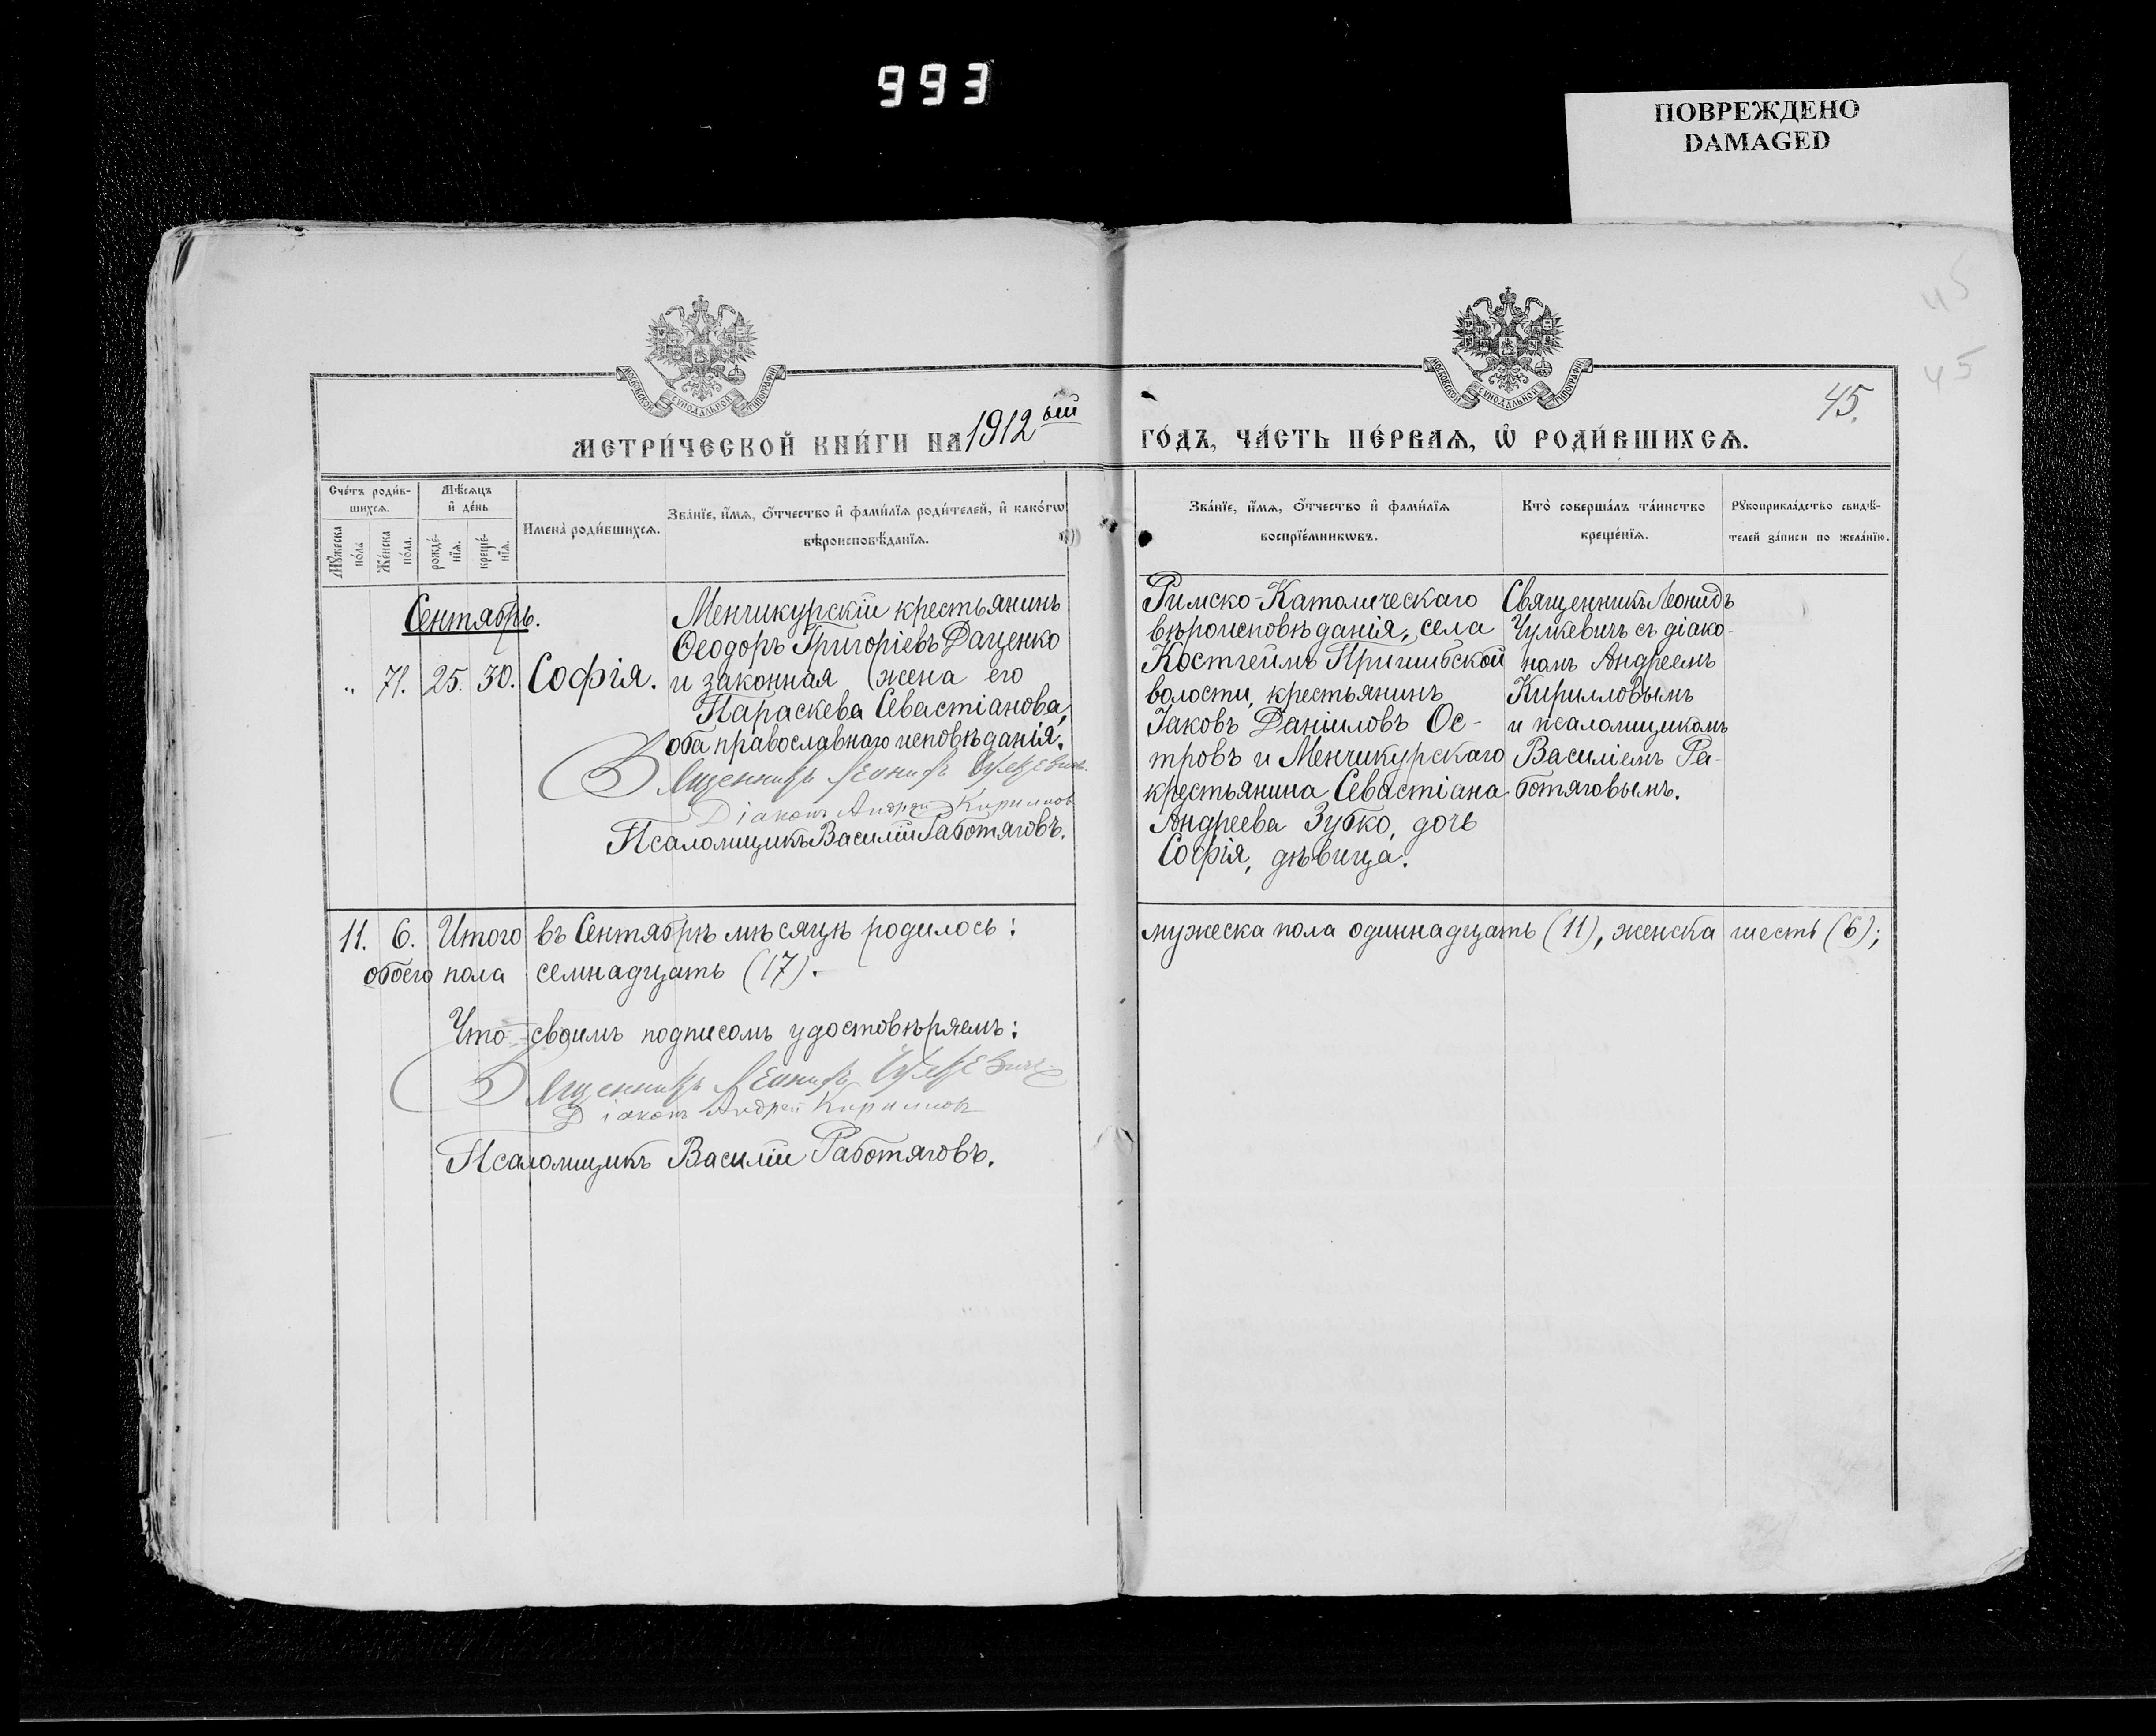 993
ПОВРЕЖДЕНО
DAMAGED
45
45
45.
МОСКОВСКОЙ СѴНОДАЛЬНОЙ ТИПОГРАФІИ
МОСКОВСКОЙ СѴНОДАЛЬНОЙ ТИПОГРАФІИ
МЕТРИ́ЧЕСКОЙ КНИ́ГИ НА 1912ый ГО́ДЪ, ЧА́СТЬ ПЕ́РВАѦ, Ѡ҆ РОДИ́ВШИХСѦ.
Сче́тъ роди́в-
шихсѧ.
Мꙋ́жеска
по́ла
Же́нска
по́ла.
Мѣ́сѧцъ
и҆ де́нь
рожде́-
нїѧ.
креще́-
нїѧ.
Имена̀ роди́вшихсѧ.
Зва́нїе, и҆́мѧ, ѻ҆́тчество и҆ фами́лїѧ роди́телей, и҆ како́гѡ
вѣроисповѣ́данїѧ.
Зва́нїе, и҆́мѧ, ѻ҆́тчество и҆ фами́лїѧ
воспрїе́мникѡвъ.
Кто̀ соверша́лъ та́инство
креще́нїѧ.
Рꙋкоприкла́дство свидѣ́-
телей за́писи по жела́нїю.
Сентябрь.
" 71. 25. 30. Софія.
Менчикурскій крестьянинъ
Ѳеодоръ Григоріевъ Даценко
и законная жена его
Параскева Севастіанова,
оба православнаго исповѣданія.
Священникъ Леонидъ Чулкевичъ
Діаконъ Андрей Кирилловъ
Псаломщикъ Василій Работяговъ.
Римско-Католическаго
вѣроисповѣданія, села
Костгеймъ Пришибской
волости, крестьянинъ
Іаковъ Даніиловъ Ос-
тровъ и Менчикурскаго
крестьянина Севастіана
Андреева Зубко, дочь
Софія, дѣвица.
Священникъ Леонидъ
Чулкевичъ съ діако-
номъ Андреемъ
Кирилловымъ
и псаломщикомъ
Василіемъ Ра-
ботяговымъ.
11. 6. Итого въ Сентябрѣ мѣсяцѣ родилось: мужеска пола одиннадцать (11), женска шесть (6);
обоего пола семнадцать (17).
Что своимъ подписомъ удостовѣряемъ:
Священникъ Леонидъ Чулкевичъ
Діаконъ Андрей Кирилловъ
Псаломщикъ Василій Работяговъ.